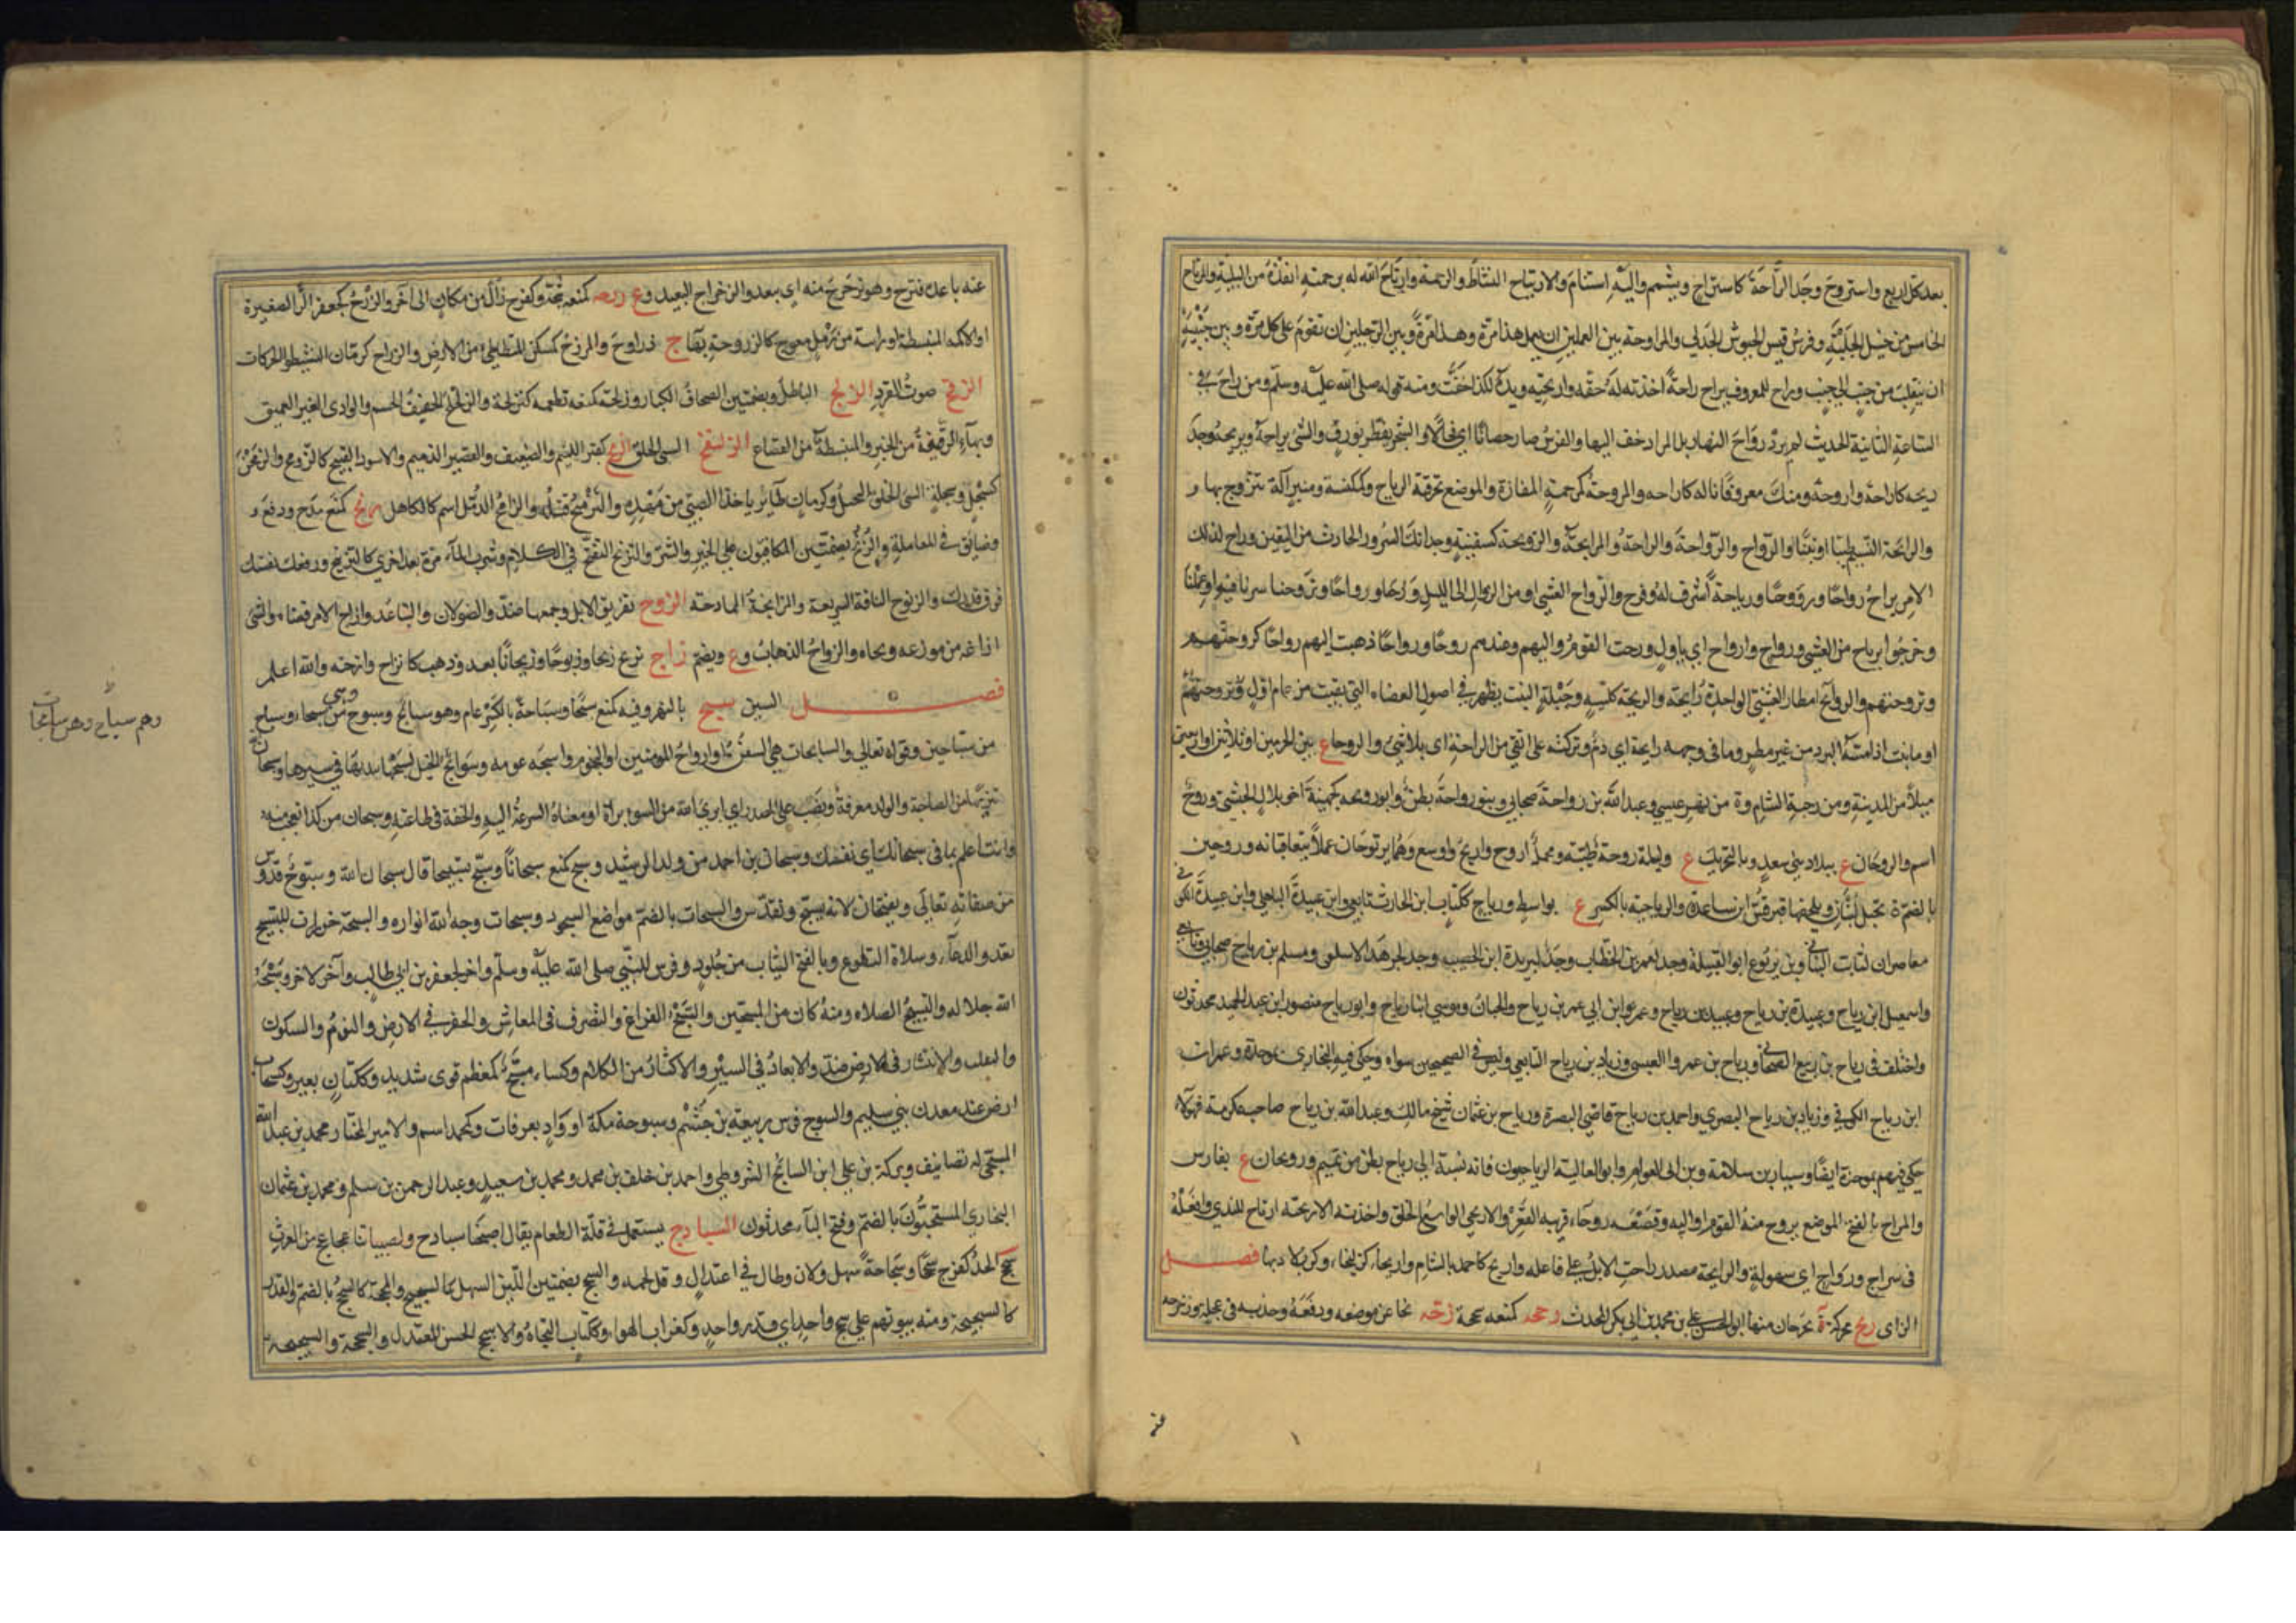 بعد تكل اريع واستروح وجد الراحة كاستراح وتشمم واليه استنام والارتياح النشاط والرحمة وارتاح الله له برحمته انقذه من البلية والمرتاح
الخامس من خيل الحلبة وفرس قيس الجيوش الجدلي والمراوحة بين العملين ان يعمل هذا مرة وهذا مرة وبين الرجلين ان تقوم على كل مرة وبين جنبيه
ان ينقلب من جنب الى جنب وراح للمعروف يراح راحة اخذته له خفة واريحية ويده لكذا خفت ومنه قوله صلى الله عليه وسلم ومن راح في
الساعة الثانية الحديث لم يرد رواح النهار بل المراد خف اليها والفرس صار حصانا اي فحلا والشجر يفطر بورق والشئ يراحه ويريحه وجد
ريحه كاراحه واروحه ومنك معروفا ناله كاراحه والمروحة كمرحمة المفازة والموضع تخترقه الرياح وكمكنسة ومنبر آلة يتروح بها و
والرائحة النسيم طيبا او نتنا والرواح والرواحة والراحة والمرايحة والرويحة كسفينة وجدانك السرور الحادث من اليقين وراح لذلك
الامر يراح رواحا ورووحا وراحا ورياحة اشرف له وفرح والرواح العشي او من الزوال الى الليل ورحنا رواحا وتروحنا سرنا فيه او عملنا
وخرجوا برياح من العشي ورواح وارواح اي باول ورحت القوم واليهم وعندهم روحا ورواحا ذهبت اليهم رواحا كروحتهم
وتروحتهم والروائح امطار العشي الواحدة رائحة والريحة ككيسة وحيلة النبت يظهر في اصول العضاه التي بقيت من عام اول
او ما نبت اذا مسه البرد من غير مطر وما في وجهه رائحة اي دم وتركته على انقى من الراحة اي بلا شئ والروحاء ع بين الحرمين او ثلاثين او اربعين
ميلا من المدينة و من رحبة الشام وة من نهر عيسى وعبد الله بن رواحة صحابي وبنو رواحة بطن وابو رويحة كجهينة اخو بلال الحبشي وروح
اسم والروحان ع ببلاد بني سعد وبالتحريك ع وليلة روحة طيبة ومحمل اروح واريح واسع وهما يرتوحان عملا يتعاقبانه وروحين
بالضم ة بجبل لبنان وبلحفها قبر قس ابن ساعدة والرياحية بالكسر ع بواسط ورياح ككتاب ابن الحارث تابعي وابن عبيدة الباهلي وابن عبيدة الكوفي
معاصران لثابت البناني وبن يربوع ابو القبيلة وجد لعمر بن الخطاب وجد لبريدة ابن الحصيب وجد لجرهد الاسلمي ومسلم بن رياح صحابي وتابعي
واسمعيل ابن رياح وعبيدة بن رياح وعبيد بن رياح وعمرو ابن ابي عمر بن رياح والخيار وموسى ابنا رياح وابو رياح منصور ابن عبد الحميد محدثون
واختلف في رياح بن ربيع الصحابي ورياح بن عمرو العبسي وزياد بن رياح التابعي وليس في الصحيحين سواه وحكى فيه البخاري بموحدة وعمران
ابن رياح الكوفي وزياد بن رياح البصري واحمد بن رياح قاضي البصرة ورياح بن عثمان شيخ مالك وعبد الله بن رياح صاحب عكرمة فهولاء
حكى فيهم بموحدة ايضا وسيار بن سلامة وبن ابي العوام وابو العالية الرياحيون فانه نسبة الى رياح بطن من تميم ورويحان ع بفارس
والمراح بالفتح الموضع يروح منه القوم او اليه وقصعة روحاء قريبة القعر والاريحي الواسع الخلق واخذته الاريحية ارتاح للندى وافعله
في سراح ورواح اي سهولة والرايحة مصدر راحت الابل على فاعلة واريح كاحمد بالشام واريحاء كزليخاء وكربلاء د بها فصل
الزاي زبح محركة ة بجرجان منها ابو الحسن علي بن محمد بن ابي بكر المحدث زحه كمنعه سحجه زحه نحاه عن موضعه ودفعه وجذبه في عجلة وزحزحه
عنه
عنه باعده فتزحزح وهو بزحزح منه اي ببعد والزحزاح البعيد وع زرحه كمنعه شجه وكفرح زال من مكان الى آخر والزروح كجعفر الرابية الصغيرة
او الاكمة المنبسطة او رابية من رمل معوج كالزروحة بهاء ج زراوح والمزرح كمسكن المتطامن من الارض والزراح كرمان النشيطو الحركات
الزقح صوت القرد الزلح الباطل وبضمتين الصحاف الكبار وزلحه كمنعه تطعمه كتزلحه والزلحلح الخفيف الجسم والوادي الغير العميق
وبهاء الرقيقة من الخبز والمنبسطة من القصاع الزلنقح السئ الخلق الزمح كقبر اللئيم والضعيف والقصير الدميم والاسود القبيح كالزومح والزمحن
كسبحل وسبحلة السئ الخلق البخيل وكرمان طائر ياخذ الصبي من مهده والتزميح قتله والزامح الدمل اسم كالكاهل زنح كمنع مدح ودفع و
وضايق في المعاملة والزنح بضمتين المكافئون على الخير والشر والتزنح التفتح في الكلام وشرب الماء مرة بعد اخرى كالتزنيح ورفعك نفسك
فوق قدرك والزنوح الناقة السريعة والمزانحة الممادحة الزوح تفريق الابل وجمعها ضد والزولان والتباعد وازاح الامر قضاه والشئ
ازاغه من موضعه ونحاه والزواح الذهاب وع ويضم زاح يزيح زيحا وزيوحا وزيحانا بعد وذهب كانزاح وازحته والله اعلم
فصل السين سبح بالنهر وفيه كمنع سبحا وسباحة بالكسر عام وهو سابح وسبوح وهي من سبحاء وسباح
وهم سباح وهن سابحات
من سباحين وقوله تعالى والسابحات هي السفن او ارواح المومنين او النجوم واسبحه عومه وسوابح الخيل لسبحها بيديها في سيرها وسبحان
تنزيها من الصاحبة والولد معرفة ونصب على المصدر اي ابرئ الله من السوء براءة او معناه السرعة اليه والخفة في طاعته وسبحان من كذا تعجب منه
وانت اعلم بما في سبحانك اي نفسك وسبحان بن احمد من ولد الرشيد وسبح كمنع سبحانا وسبح تسبيحا قال سبحان الله وسبوح قدوس
من صفاته تعالى ويفتحان لانه يسبح ويقدس والسبحات بالضم مواضع السجود وسبحات وجه الله انواره والسبحة خرزات للتسبيح
تعد والدعاء وصلاة التطوع وبالفتح الثياب من جلود وفرس للنبي صلى الله عليه وسلم واخر لجعفر بن ابي طالب وآخر لاخر وسبحة
الله جلاله والتسبيح الصلاة ومنه كان من المسبحين والسبح الفراغ والتصرف في المعاش والحفر في الارض والنوم والسكون
والتقلب والانتشار في الارض ضد والابعاد في السير والاكثار من الكلام وكساء مسبح كمعظم قوي شديد وككتان بعير وكسحاب
ارض عند معدن بني سليم والسبوح فرس ربيعة بن جشم وسبوحة مكة او واد بعرفات وكمحمد اسم والامير المختار محمد بن عبيد الله
المسبحي له تصانيف وبركة بن علي ابن السابح الشروطي واحمد بن خلف بن محمد ومحمد بن سعيد وعبد الرحمن بن مسلم ومحمد بن عثمان
البخاري المسبحيون بالضم وفتح الباء محدثون السبادح يستعمل في قلة الطعام يقال اصبحنا سبادح ولصبياننا عجاعج من الغرث
سجح الخد كفرح سجحا وسجاحة سهل ولان وطال في اعتدال وقل لحمه والسجح بضمتين اللين السهل كالسجيح والمحجة كالسجح بالضم والقدر
كالسجيحة ومنه بيوتهم على سجح واحد اي قدر واحد وكغراب الهواء وككتاب التجاه والاسجح الحسن المعتدل والسجحة والسجيحة